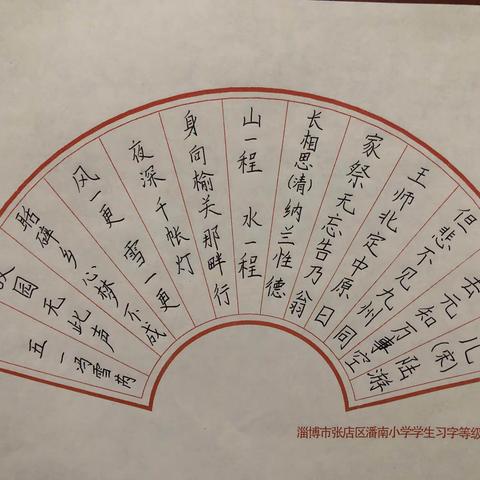 儿(宋)陆游
去元知万事空
但悲不见九州同
王师北定中原日
家祭无忘告乃翁
长相思(清)纳兰性德
山一程 水一程
身向榆关那畔行
夜深千帐灯
风一更 雪一更
聒碎乡心梦不成
故园无此声
五一冯雪芮
淄博市张店区潘南小学学生习字等级